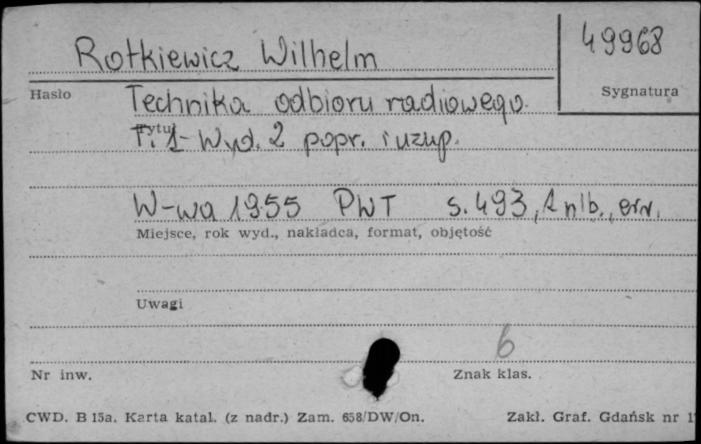 Rotkiewicz Wilhelm
49968
Hasło
Sygnatura
Technika odbioru radiowego.
Tytuł
T. 1 - Wyd. 2 popr. i uzup.
W-wa 1955 PWT s. 493, 1 nlb., err.
Miejsce, rok wyd., nakładca, format, objętość
Uwagi
6
Nr inw.
Znak klas.
CWD. B 15a. Karta katal. (z nadr.) Zam. 658/DW/On.
Zakł. Graf. Gdańsk nr